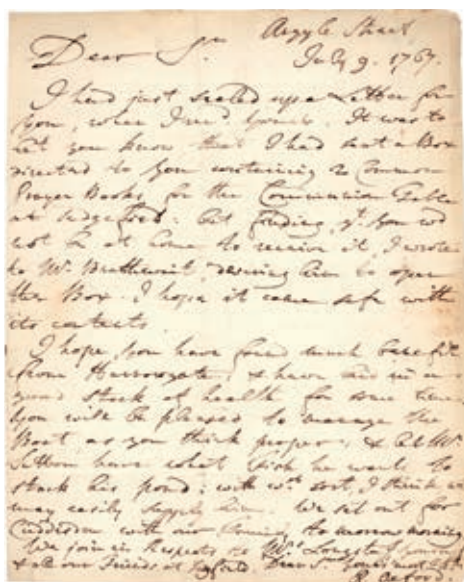 Argyle Street
July 9. 1767.
Dear Sr
I had just sealed up a Letter for
you, when I recd. yours. It was to
let you know that I had sent a Box
directed to you containing 2 Common
Prayer Books for the Communion Table
at Sedgefield: but finding yt. you wd
not be at home to receive it I wrote
to Mr. Brathwait, desiring him to open
the Box. I hope it came safe with
its contents.
I hope you have found much benefit
from Harrowgate, & have laid in a
good stock of health for some time.
You will be pleased to manage the
Boat as you think proper, & let Mr
Sutton have what fish he wants to
stock his pond: with wt. sort, I think we
may easily supply him. We sit out for
Cuddesdon with our Family to morrow morning
We join in Respects to Mrs Longstaff
& all our Friends at Dear Sr
R. Oxford